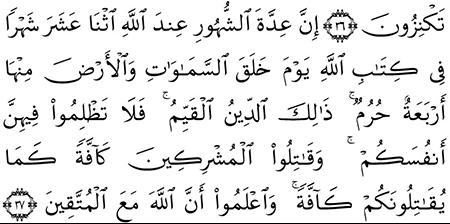 تَكْنِزُونَ ﴿٣٦﴾ إِنَّ عِدَّةَ ٱلشُّهُورِ عِندَ ٱللَّهِ ٱثْنَا عَشَرَ شَهْرًا
فِى كِتَـٰبِ ٱللَّهِ يَوْمَ خَلَقَ ٱلسَّمَـٰوَٰتِ وَٱلْأَرْضَ مِنْهَآ
أَرْبَعَةٌ حُرُمٌ ۚ ذَٰلِكَ ٱلدِّينُ ٱلْقَيِّمُ ۚ فَلَا تَظْلِمُوا۟ فِيهِنَّ
أَنفُسَكُمْ ۚ وَقَـٰتِلُوا۟ ٱلْمُشْرِكِينَ كَآفَّةً كَمَا
يُقَـٰتِلُونَكُمْ كَآفَّةً ۚ وَٱعْلَمُوٓا۟ أَنَّ ٱللَّهَ مَعَ ٱلْمُتَّقِينَ ﴿٣٧﴾